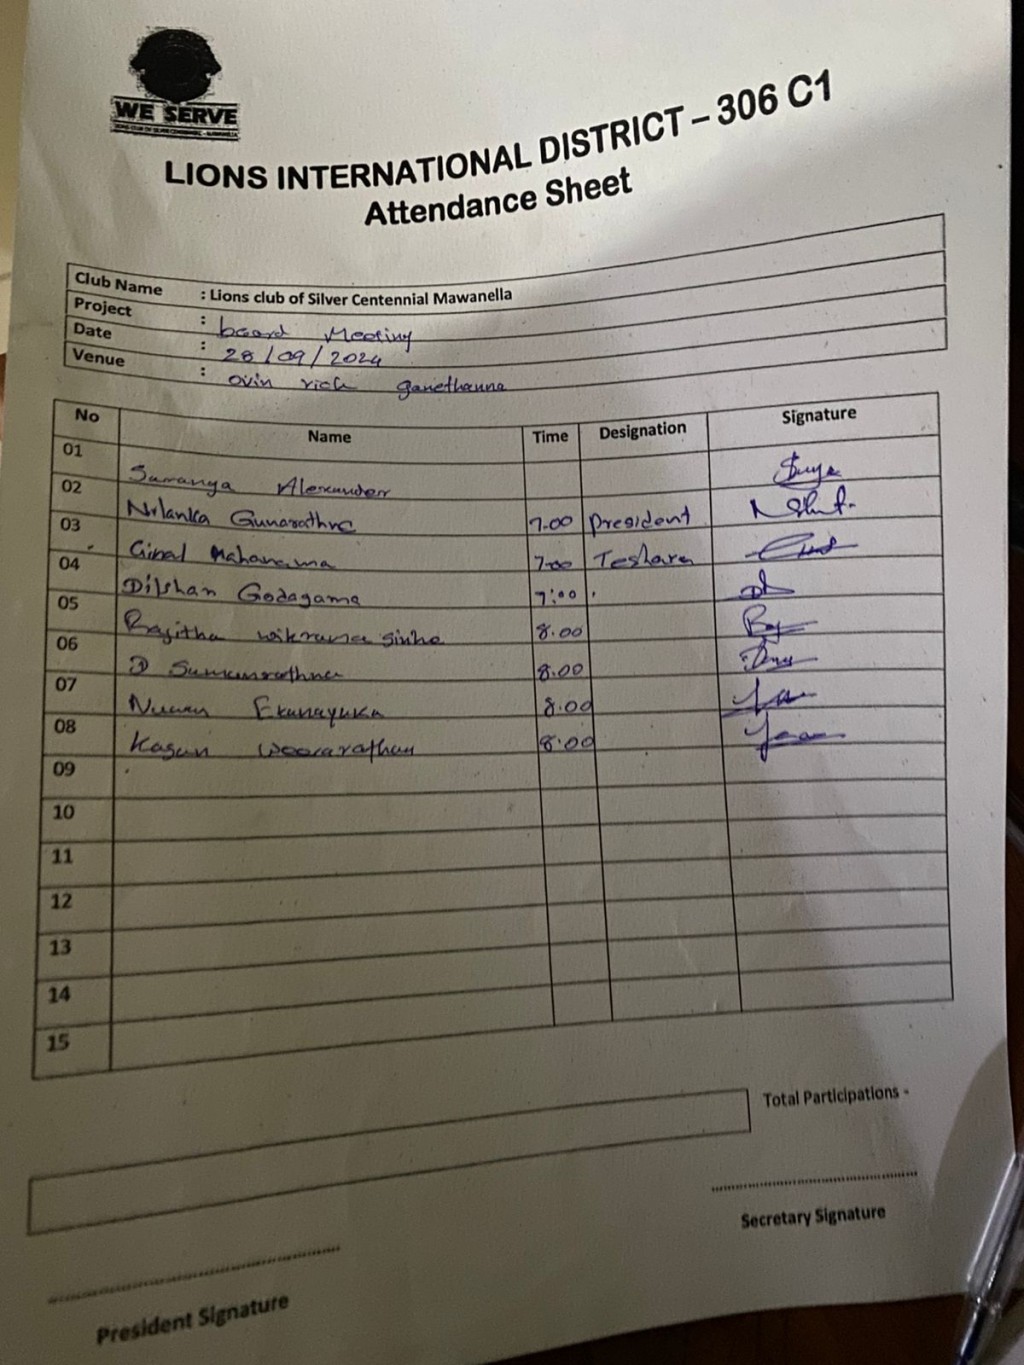 WE SERVE
LIONS INTERNATIONAL DISTRICT – 306 C1
Attendance Sheet
Club Name : Lions club of Silver Centennial Mawanella
Project : board Meeting
Date : 28/09/2024
Venue : ovin rich ganethanna
No Name Time Designation Signature
01 Suranya Alexander
02 Nilanka Gunarathne 7.00 President
03 Gimal Mahanama 7.00 Teshare
04 Dilshan Godagama 7:00
05 Rajitha wikrama sinhe 8.00
06 D Sumanarathna 8.00
07 Nuwan Ekanayaka 8.00
08 Kasun weerarathna 8.00
09
10
11
12
13
14
15
Total Participations -
Secretary Signature
President Signature